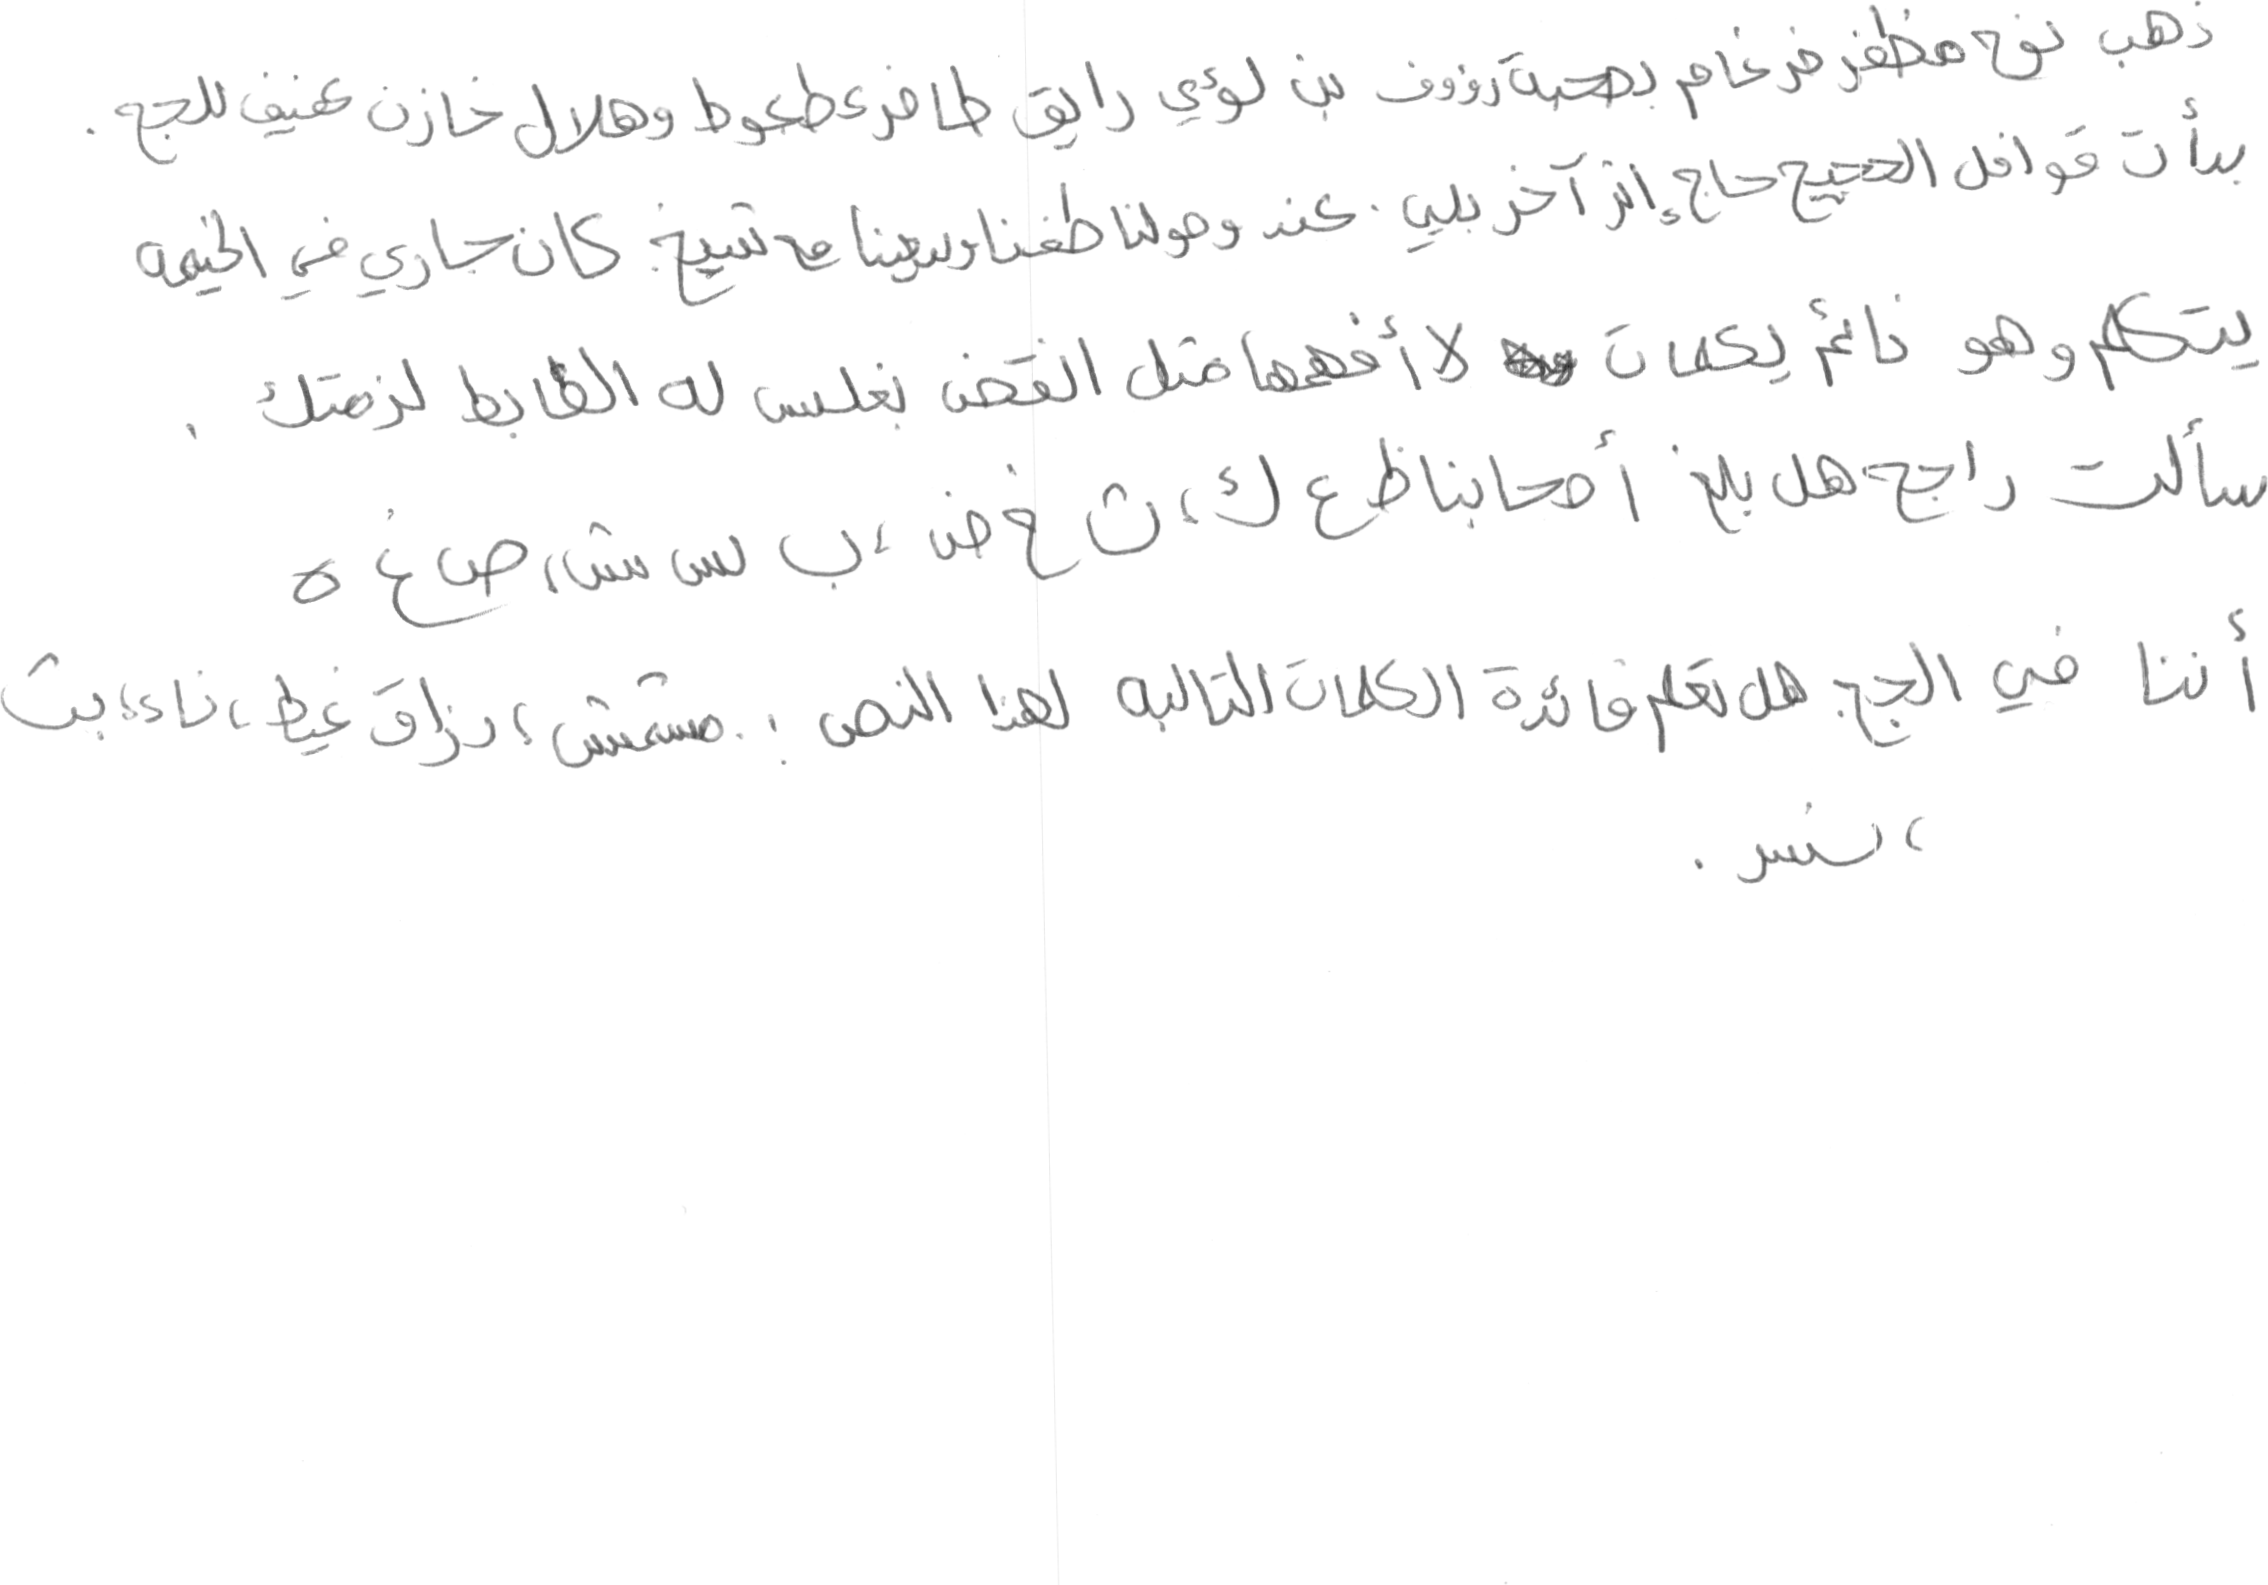 ذهب نوح مظفر ضرغام بصحبة رؤوف بن لؤي رايق ظافر عطعوط وهلال خازن عفيف للحج .
بدأت قوافل الحجيج حاج إثر آخر بلي . عند وصولنا طفنا وسعينا مع شيخ . كان جاري في الخيمه
يتكلم وهو نائم بكلمات لا أفهمها مثل القض بغلس له الضابط لزمتك .
سألت راجح هل بلغ أصحابنا ظ ع ك ، ث خ ض ، ب س ش ، ص غ ه
أننا في الحج . هل تعلم فائدة الكلمات التاليه لهذا النص : مشمش ، رزاق غيط ، ناء ، بث
، نسر .